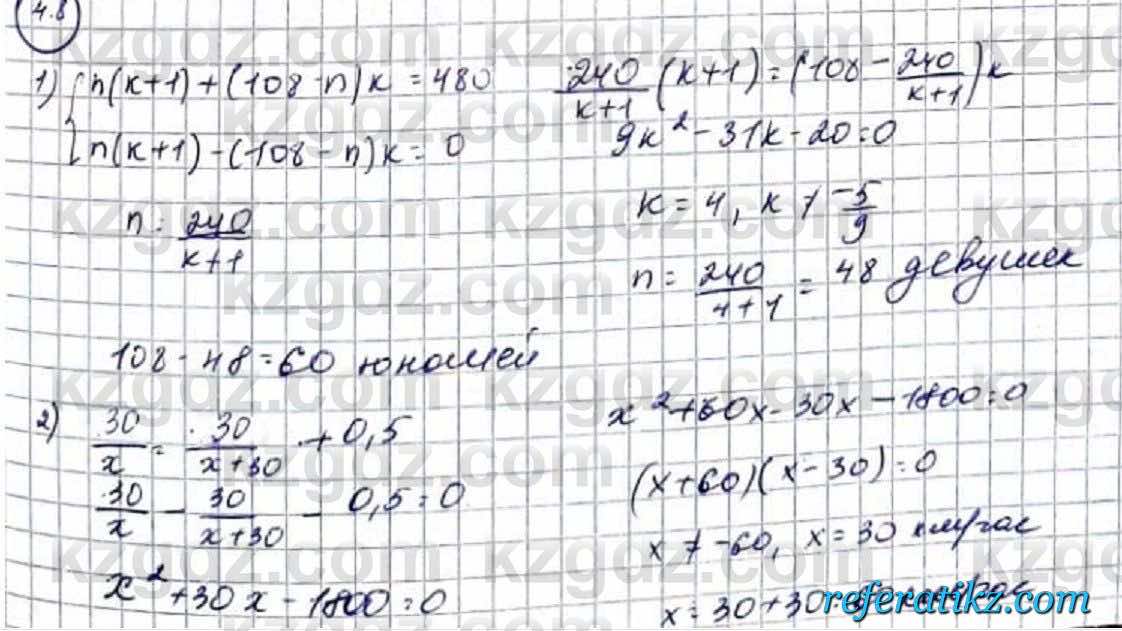 4.8
1) n(k+1)+(108-n)k=480
n(k+1)-(108-n)k=0
n=240/(k+1)
240/(k+1) (k+1)=(108-240/(k+1))k
9k²-31k-20=0
k=4, k≠-5/9
n=240/(4+1)=48 девушек
108-48=60 юношей
2) 30/x=30/(x+30)+0,5
30/x-30/(x+30)-0,5=0
x²+30x-1800=0
x²+60x-30x-1800=0
(x+60)(x-30)=0
x≠-60, x=30 км/час
x=30+30
kzgdz.com
referatikz.com